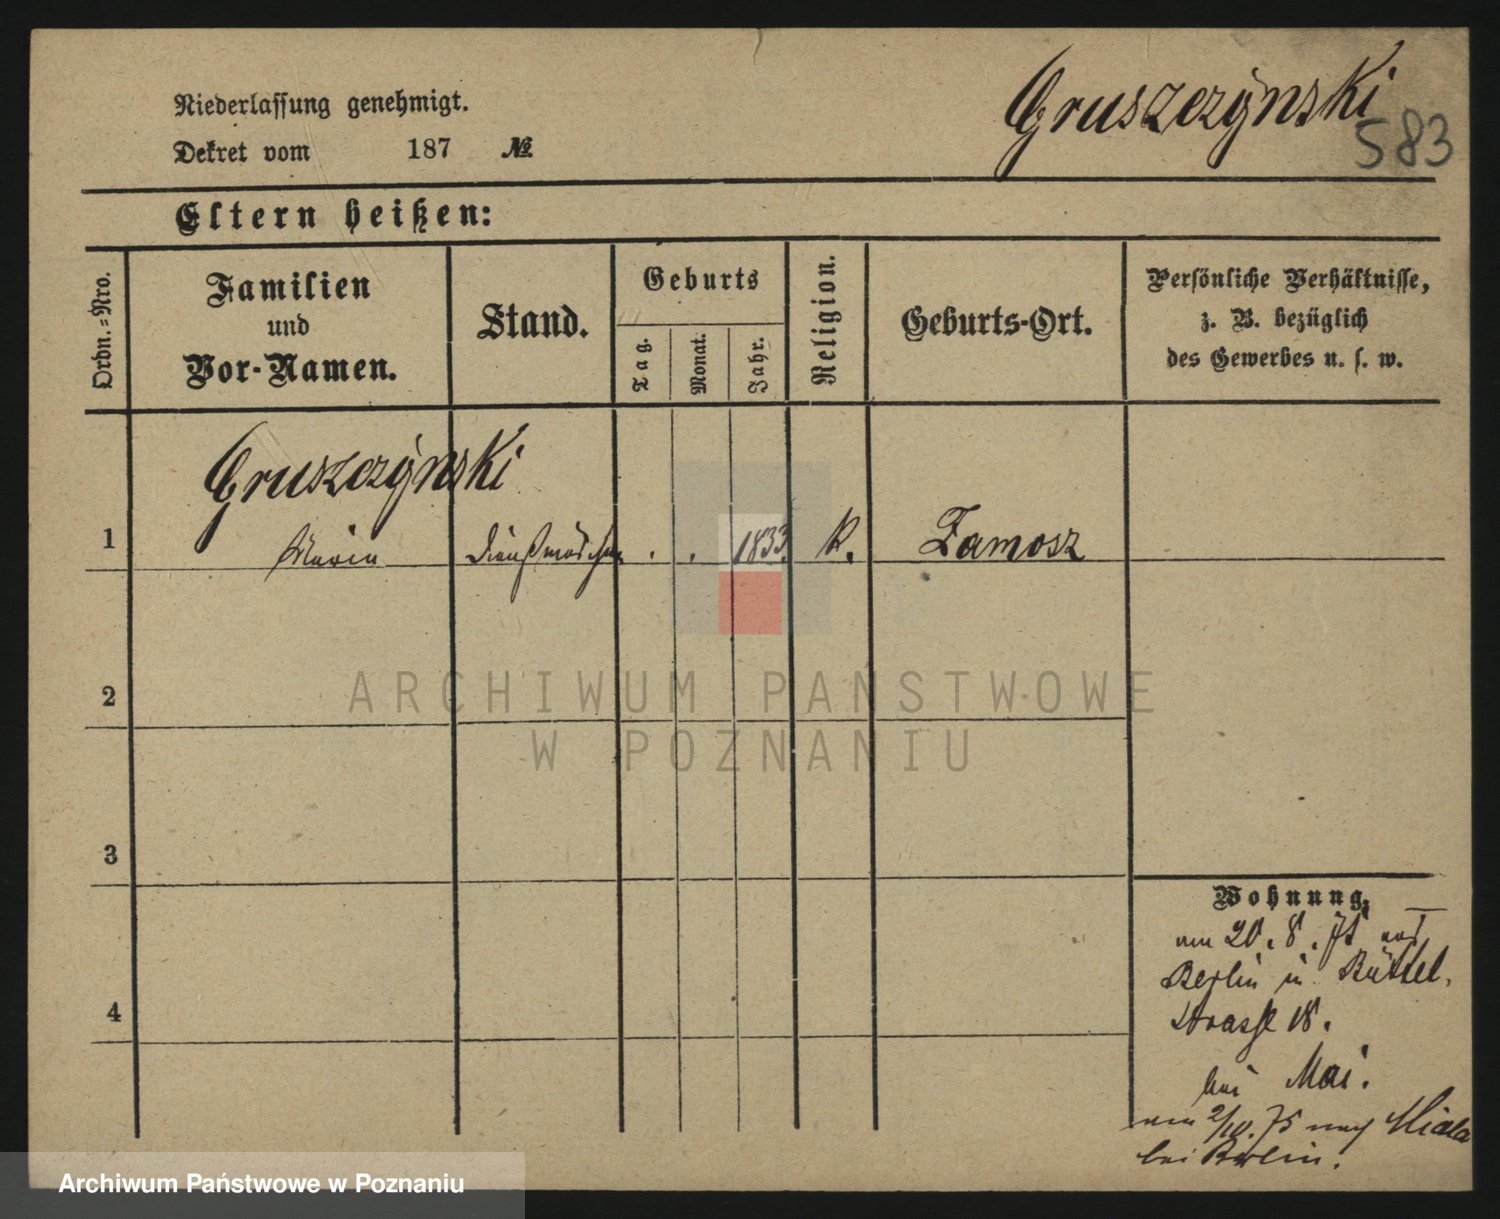 Niederlassung genehmigt.
Dekret vom 187 №
Gruszczynski
583
Eltern heißen:
Ordn.=Nro.
Familien
und
Vor-Namen.
Stand.
Geburts
Tag.
Monat.
Jahr.
Religion.
Geburts-Ort.
Persönliche Verhältnisse,
z. B. bezüglich
des Gewerbes u. s. w.
Gruszczynski
1 Maria Dienstmädchen . . 1833. K. Zamosz
2
3
4
Wohnung,
am 20. 8. 75 aus
Berlin in Büttel-
strasse 18.
bei Mai.
am 2/10. 75 nach
bei Berlin.
ARCHIWUM PAŃSTWOWE
W POZNANIU
Archiwum Państwowe w Poznaniu